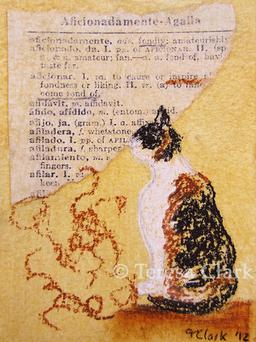 Aficionadamente-Agalla
aficionadamente, adv. fondly; amateurishly
aficionado, da. I. pp. of AFICIONAR. II. (sp
n. & a. amateur; fan.—a. a fond of, hav
taste for.
aficionar. I. to cause or inspire th
fondness or liking. II. vr. (a) to
come fond of.
afidávit, m. affidavit.
áfido, afídido, m. (entom.)
afijo, ja. (gram.) I. a.
afiladera, f. whetstone
afilado. I. pp. of AFIL
afiladura, f. sharpe
afilamiento, m.
fingers.
afilar. I.
© Teresa Clark
TClark '12